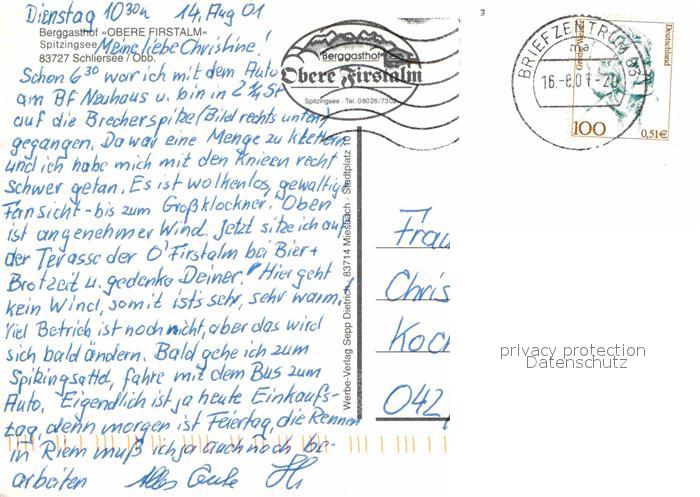 Dienstag 10 30h 14. Aug 01
Berggasthof »OBERE FIRSTALM«
Spitzingsee
83727 Schliersee / Obb.
Meine liebe Christine!
Schon 6 30 war ich mit dem Auto
am Bf Neuhaus u. bin in 2 1/4 St
auf die Brecherspitze (Bild rechts unten)
gegangen. Da war eine Menge zu klettern
und ich habe mich mit den Knieen recht
schwer getan. Es ist wolkenlos, gewaltige
Fernsicht - bis zum Großklockner. Oben
ist angenehmer Wind. Jetzt sitze ich auf
der Terasse der O'Firstalm bei Bier +
Brotzeit u. gedenke Deiner! Hier geht
kein Wind, somit ists sehr, sehr warm.
Viel Betrieb ist noch nicht, aber das wird
sich bald ändern. Bald gehe ich zum
fahre mit dem Bus zum
Auto. Eigendlich ist ja heute Einkaufs-
tag, denn morgen ist Feiertag, die Rennen
in Riem muß ich ja auch noch be-
arbeiten Alles Gute
Berggasthof
Obere Firstalm
Spitzingsee · Tel. 08026/7302
Werbe-Verlag Sepp Dietrich, 83714 Miesbach · Stadtplatz 10
BRIEFZENTRUM 83
ma
16.-8.01-20
Deutschland
100
0,51€
Frau
Chris
Koch
042
privacy protection
Datenschutz